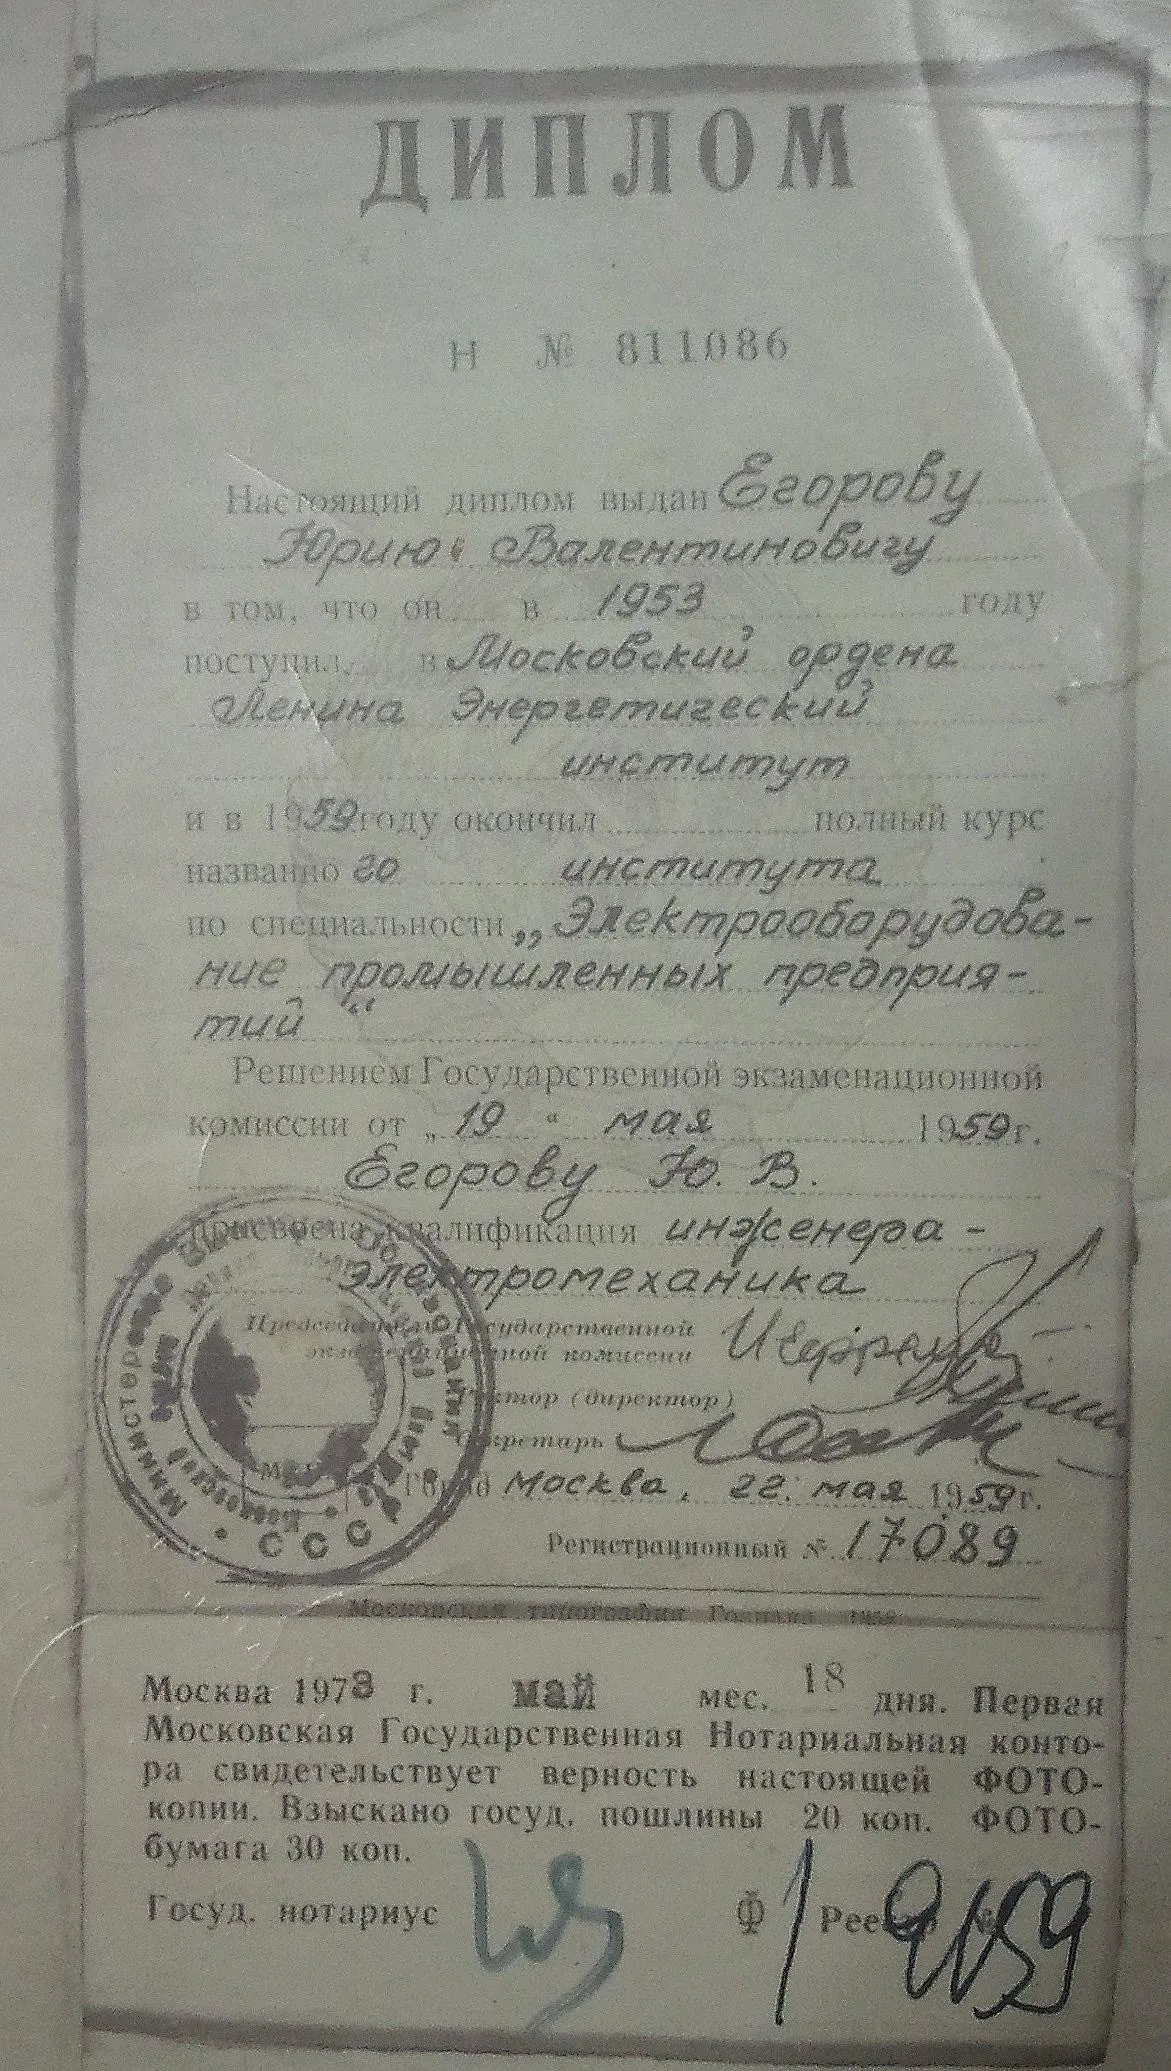 ДИПЛОМ
Н № 811086
Настоящий диплом выдан Егорову
Юрию Валентиновичу
в том, что он в 1953 году
поступил в Московский ордена
Ленина Энергетический
институт
и в 1959 году окончил полный курс
названного института
по специальности „Электрооборудова-
ние промышленных предприя-
тий“
Решением Государственной экзаменационной
комиссии от „19“ мая 1959 г.
Егорову Ю. В.
присвоена квалификация инженера-
электромеханика
Председатель Государственной
экзаменационной комиссии
Ректор (директор)
Секретарь
Город Москва, 22 мая 1959 г.
Регистрационный № 17089
Министерство Высшего Образования СССР
Московская типография Гознака. 1958
Москва 1973 г. май мес. 18 дня. Первая
Московская Государственная Нотариальная конто-
ра свидетельствует верность настоящей ФОТО-
копии. Взыскано госуд. пошлины 20 коп. ФОТО-
бумага 30 коп.
Госуд. нотариус Ф 1 Реестр №